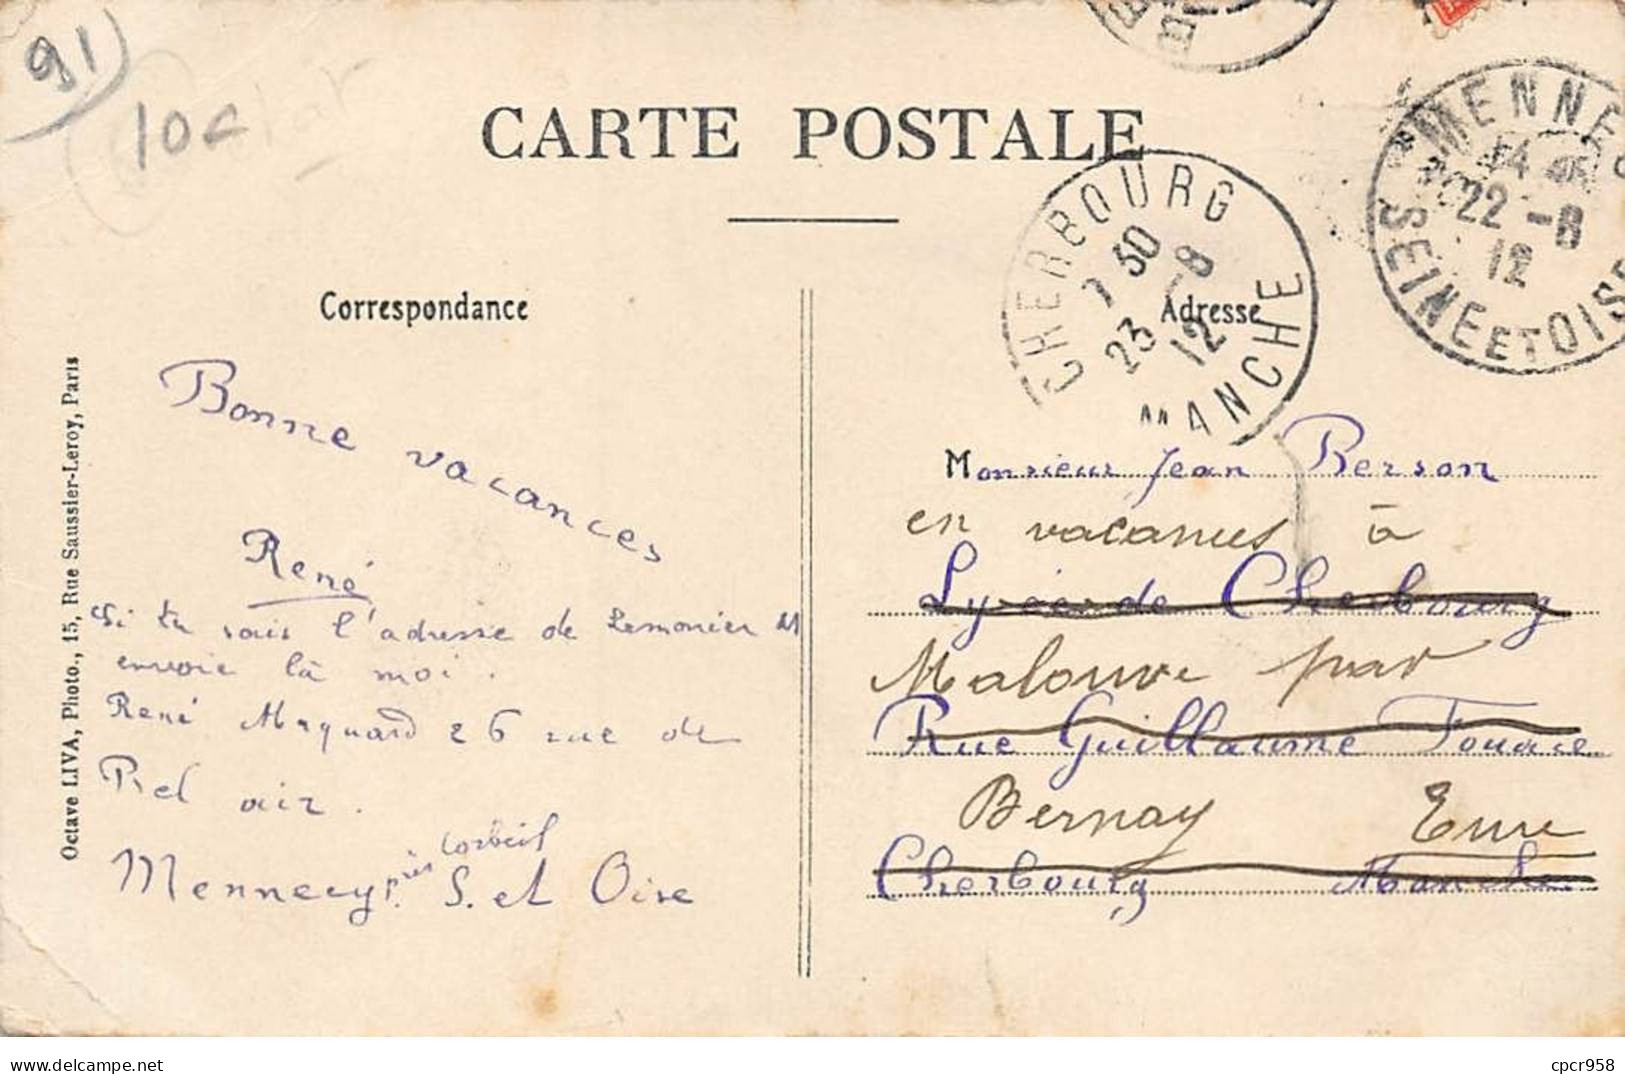 91
10c
CARTE POSTALE
MENNEC
14 45
22 -8
12
SEINE ET OISE
CHERBOURG
7 30
23 -8
12
MANCHE
Correspondance
Adresse
Octave LIVA, Photo., 15, Rue Saussier-Leroy, Paris
Bonne vacances
René
Si tu sais l'adresse de Lemonier
envoie la moi.
René Maquard 26 rue de
Bel air.
Mennecy près Corbeil S. et Oise
Monsieur Jean Berson
en vacances à
Lycée de Cherbourg
Malouve par
Rue Guillaume Fouace
Bernay Eure
Cherbourg Manche
cpcr958